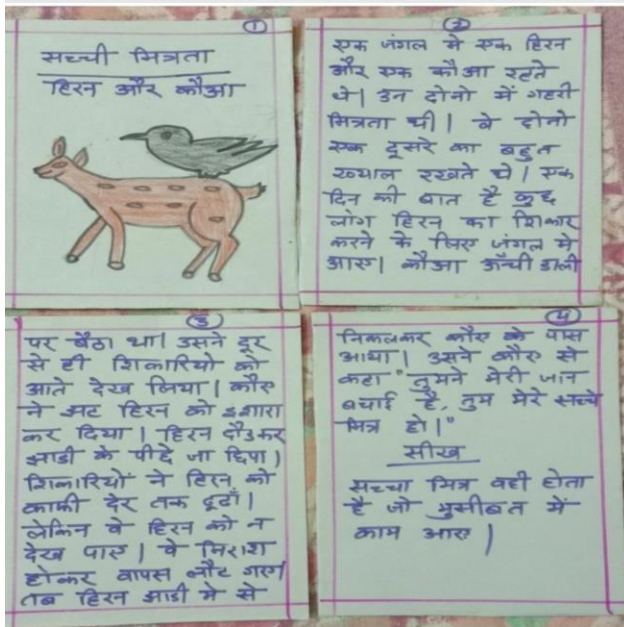 1
सच्ची मित्रता
हिरन और कौआ
2
एक जंगल मे एक हिरन
और एक कौआ रहते
थे। उन दोनो में गहरी
मित्रता थी। वे दोनो
एक दूसरे का बहुत
ख्याल रखते थे। एक
दिन की बात है कुछ
लोग हिरन का शिकार
करने के लिए जंगल मे
आए। कौआ ऊँची डाली
3
पर बैठा था। उसने दूर
से ही शिकारियो को
आते देख लिया। कौए
ने झट हिरन को इशारा
कर दिया। हिरन दौडकर
झाडी के पीछे जा छिपा।
शिकारियों ने हिरन को
काफी देर तक ढूढाँ।
लेकिन वे हिरन को न
देख पाए। वे निराश
होकर वापस लौट गए।
तब हिरन झाडी मे से
4
निकलकर कौए के पास
आया। उसने कौए से
कहा "तुमने मेरी जान
बचाई है, तुम मेरे सच्चे
मित्र हो।"
सीख
सच्चा मित्र वही होता
है जो मुसीबत में
काम आए।